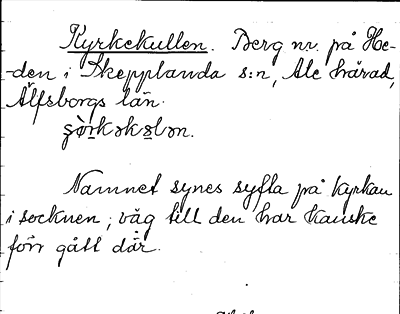 Kyrkekullen. Berg nr. på He-
-den i Skepplanda s:n, Ale härad,
Älfsborgs län.
Namnet synes syfta på kyrkan
i socknen; väg till den har kanske
förr gått där.